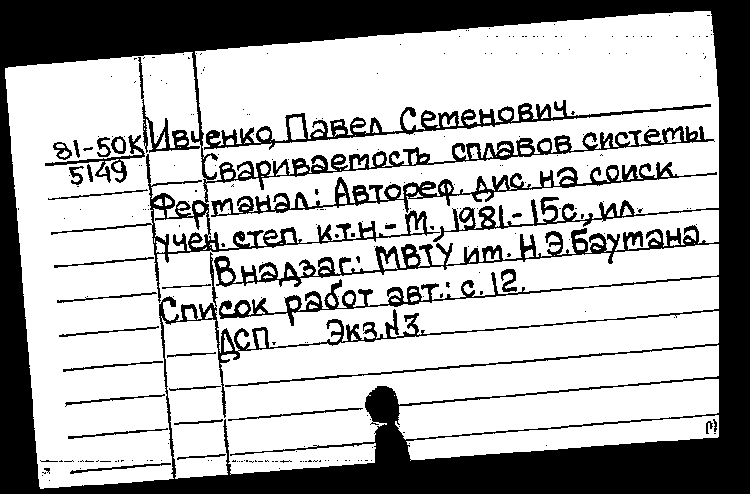 81-50К Ивченко, Павел Семенович.
5149 Свариваемость сплавов системы
Фертанал: Автореф. дис. на соиск.
учен. степ. к.т.н. - М., 1981. - 15с., ил.
В надзаг.: МВТУ им. Н.Э.Баумана.
Список работ авт.: с. 12.
ДСП. Экз.№3.